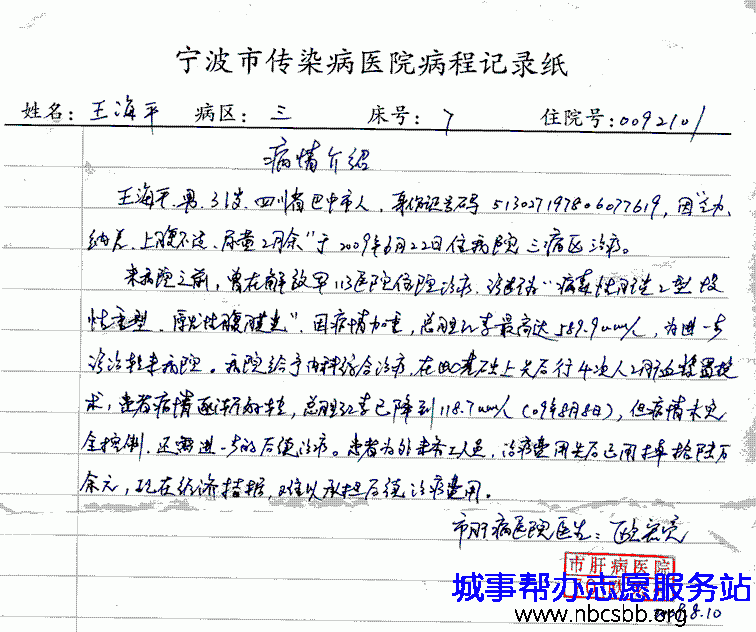 宁波市传染病医院病程记录纸
姓名：王海平 病区：三 床号：7 住院号：0092101
病情介绍
王海平，男，31岁，四川省巴中市人，身份证号码 513027197806077619，因"乏力、
纳差、上腹不适、尿黄2月余"于2009年6月22日住我院三病区治疗。
来我院之前，曾在解放军113医院住院治疗，诊断为"病毒性肝炎 型 慢
性重型、原发性腹膜炎"，因病情加重，总胆红素最高达589.9umol/L，为进一步
诊治转来我院。我院给予内科综合治疗，在此基础上先后行4次人工肝血浆置换
术，患者病情逐渐好转，总胆红素已降到118.7umol/L（09年8月8日），但病情未完
全控制，还需进一步的后续治疗。患者为外来务工人员，治疗费用先后已用掉拾陆万
余元，现在经济拮据，难以承担后续治疗费用。
市肝病医院医生：
市肝病医院
城事帮办志愿服务站
www.nbcsbb.org
8.10